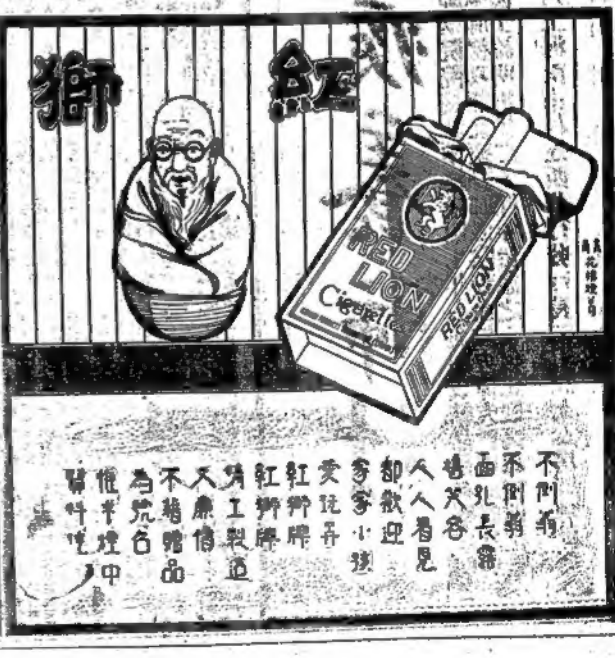 紅獅
RED
LION
Cigarettes
RED LION
不倒翁
不倒翁
面孔長鬍
嬉笑容
人人看見
都歡迎
家家小孩
愛玩弄
紅獅牌
紅獅牌
精工製造
又廉價
不藉贈品
為號召
惟英煙中